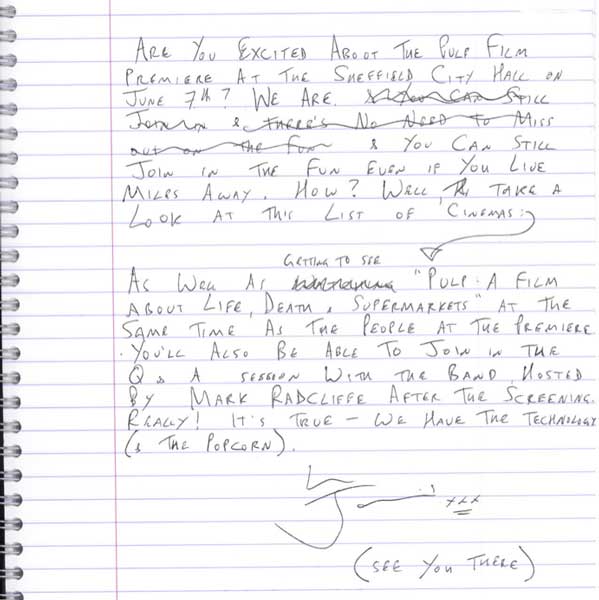 ARE YOU EXCITED ABOUT THE PULP FILM
PREMIERE AT THE SHEFFIELD CITY HALL ON
JUNE 7TH? WE ARE. & YOU CAN STILL
JOIN IN & THERE'S NO NEED TO MISS
OUT ON THE FUN & YOU CAN STILL
JOIN IN THE FUN EVEN IF YOU LIVE
MILES AWAY. HOW? WELL, TAKE A
LOOK AT THIS LIST OF CINEMAS:
GETTING TO SEE
AS WELL AS "PULP: A FILM
ABOUT LIFE, DEATH & SUPERMARKETS" AT THE
SAME TIME AS THE PEOPLE AT THE PREMIERE
. YOU'LL ALSO BE ABLE TO JOIN IN THE
Q & A SESSION WITH THE BAND HOSTED
BY MARK RADCLIFFE AFTER THE SCREENING.
REALLY! IT'S TRUE – WE HAVE THE TECHNOLOGY
(& THE POPCORN).
J xxx
(SEE YOU THERE)